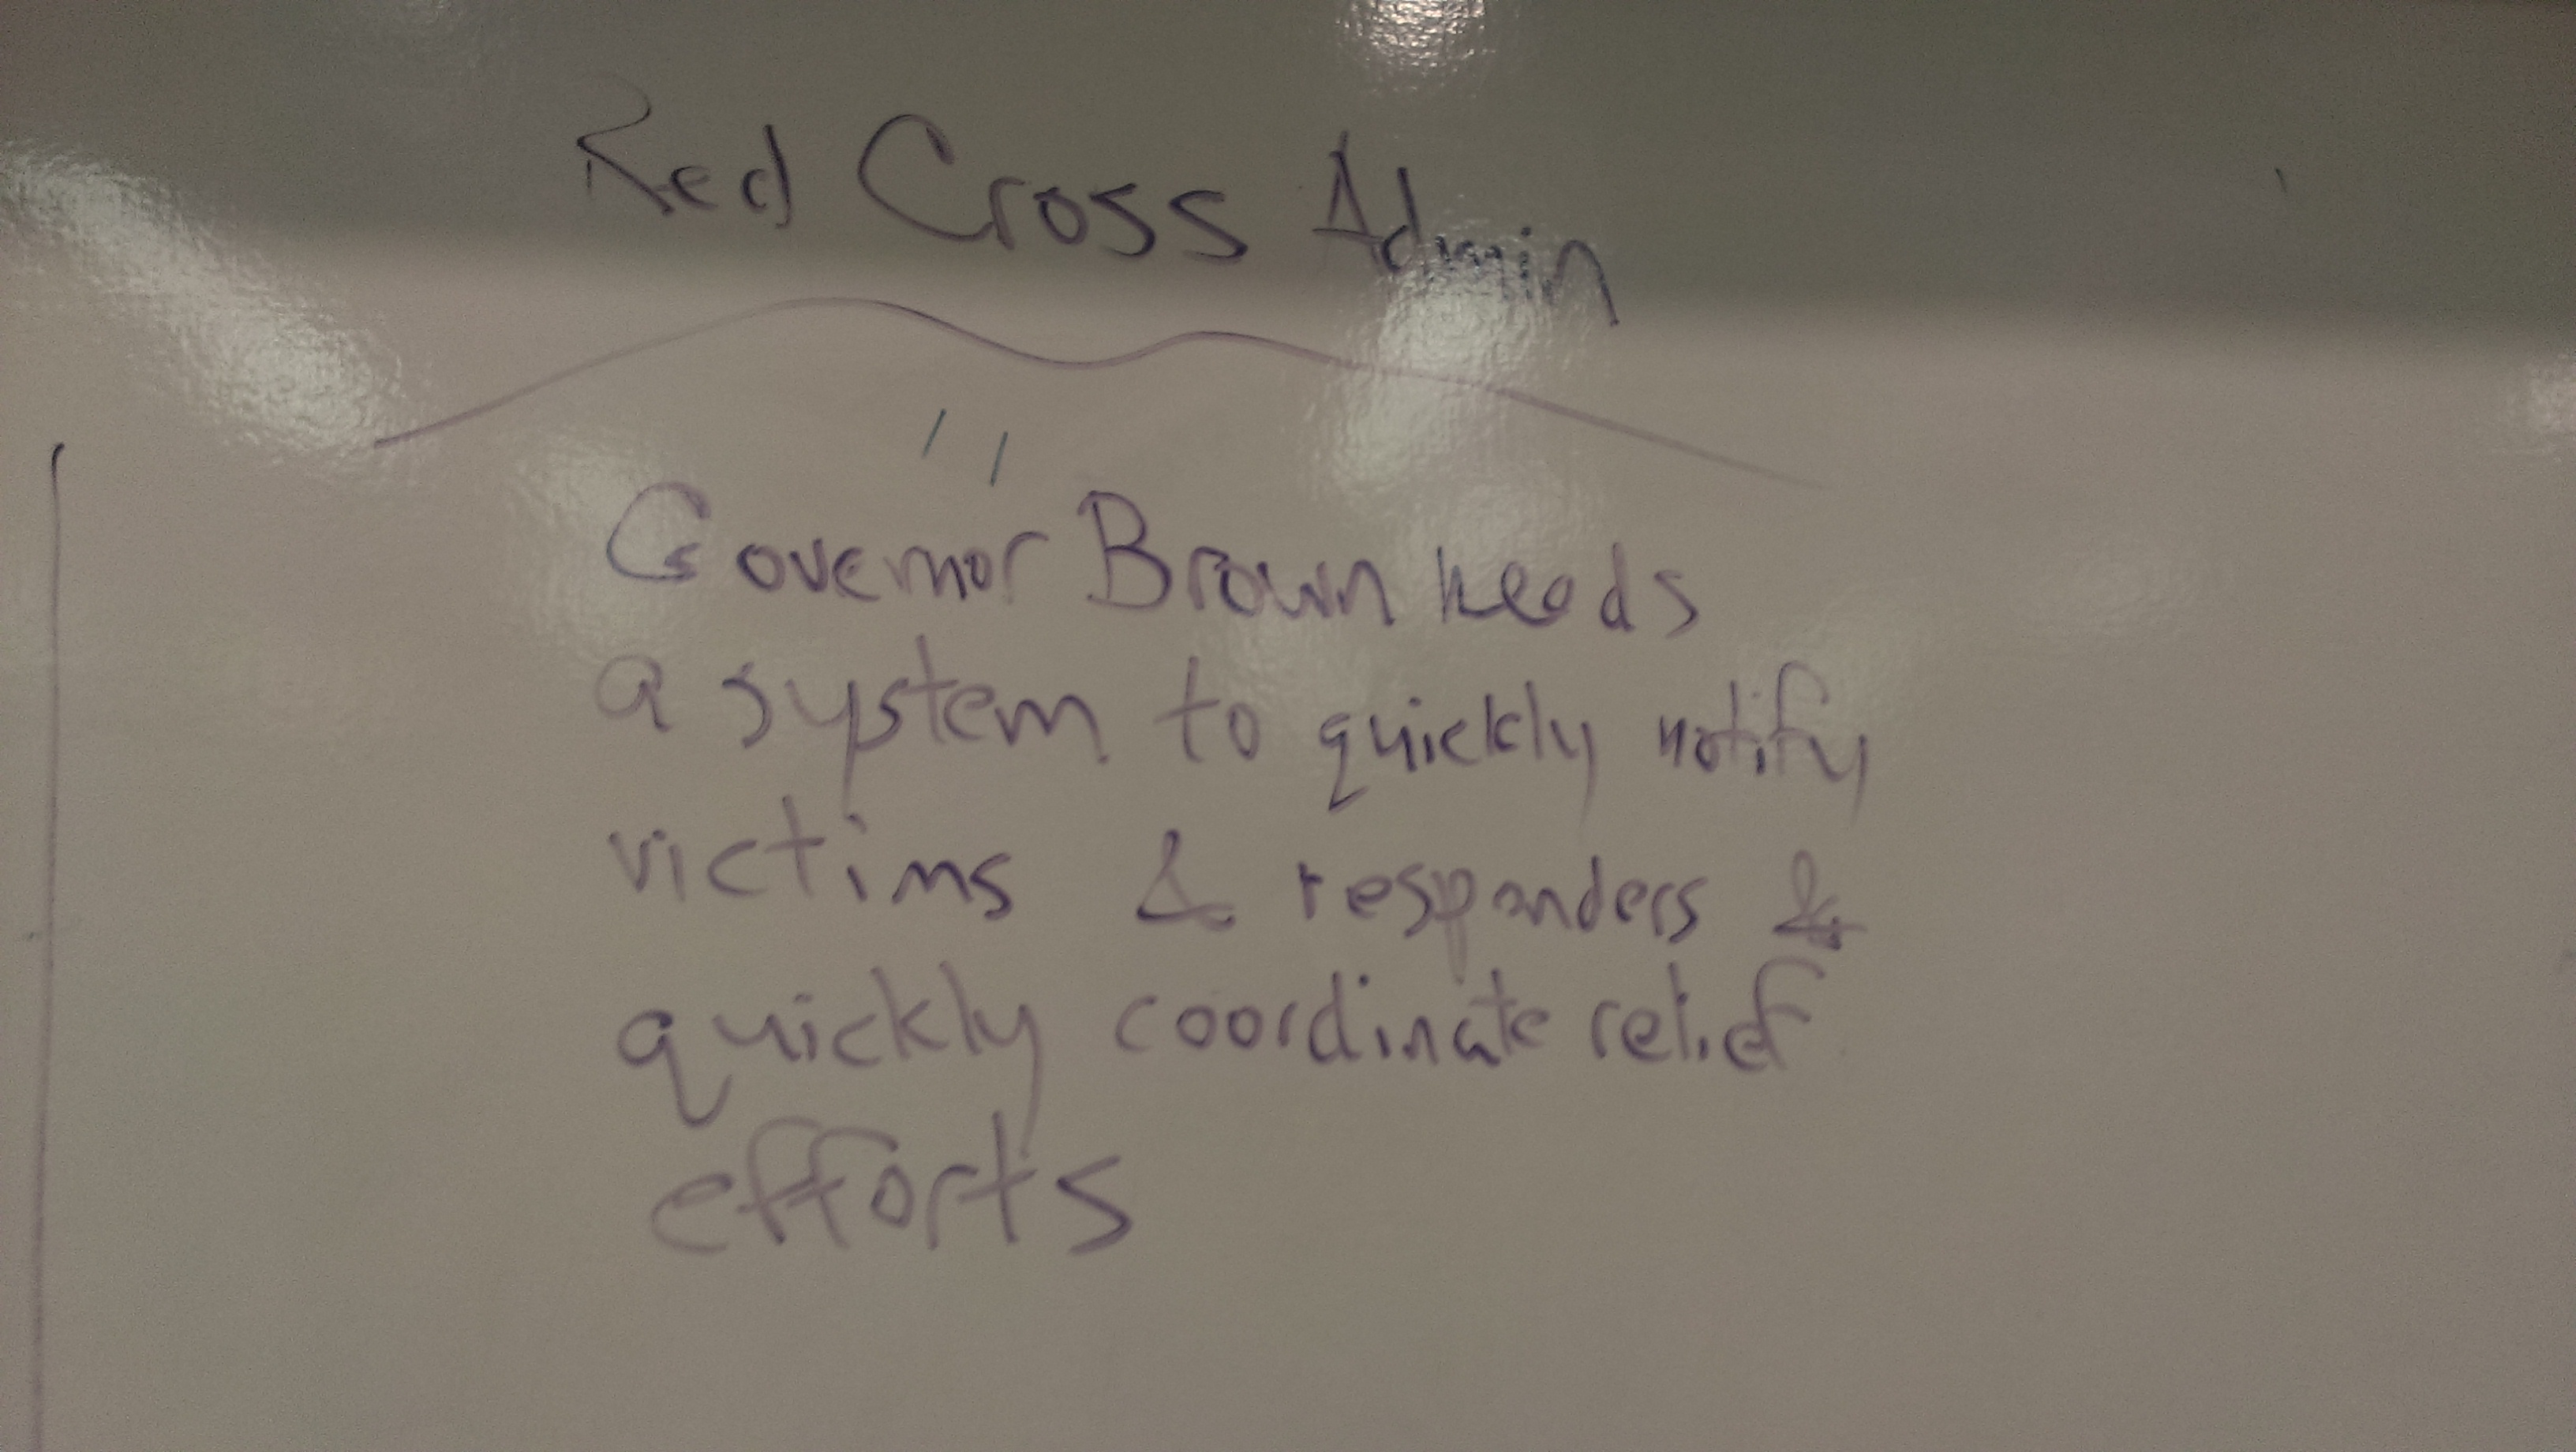 Red Cross Admin
Governor Brown needs
a system to quickly notify
victims & responders &
quickly coordinate relief
efforts